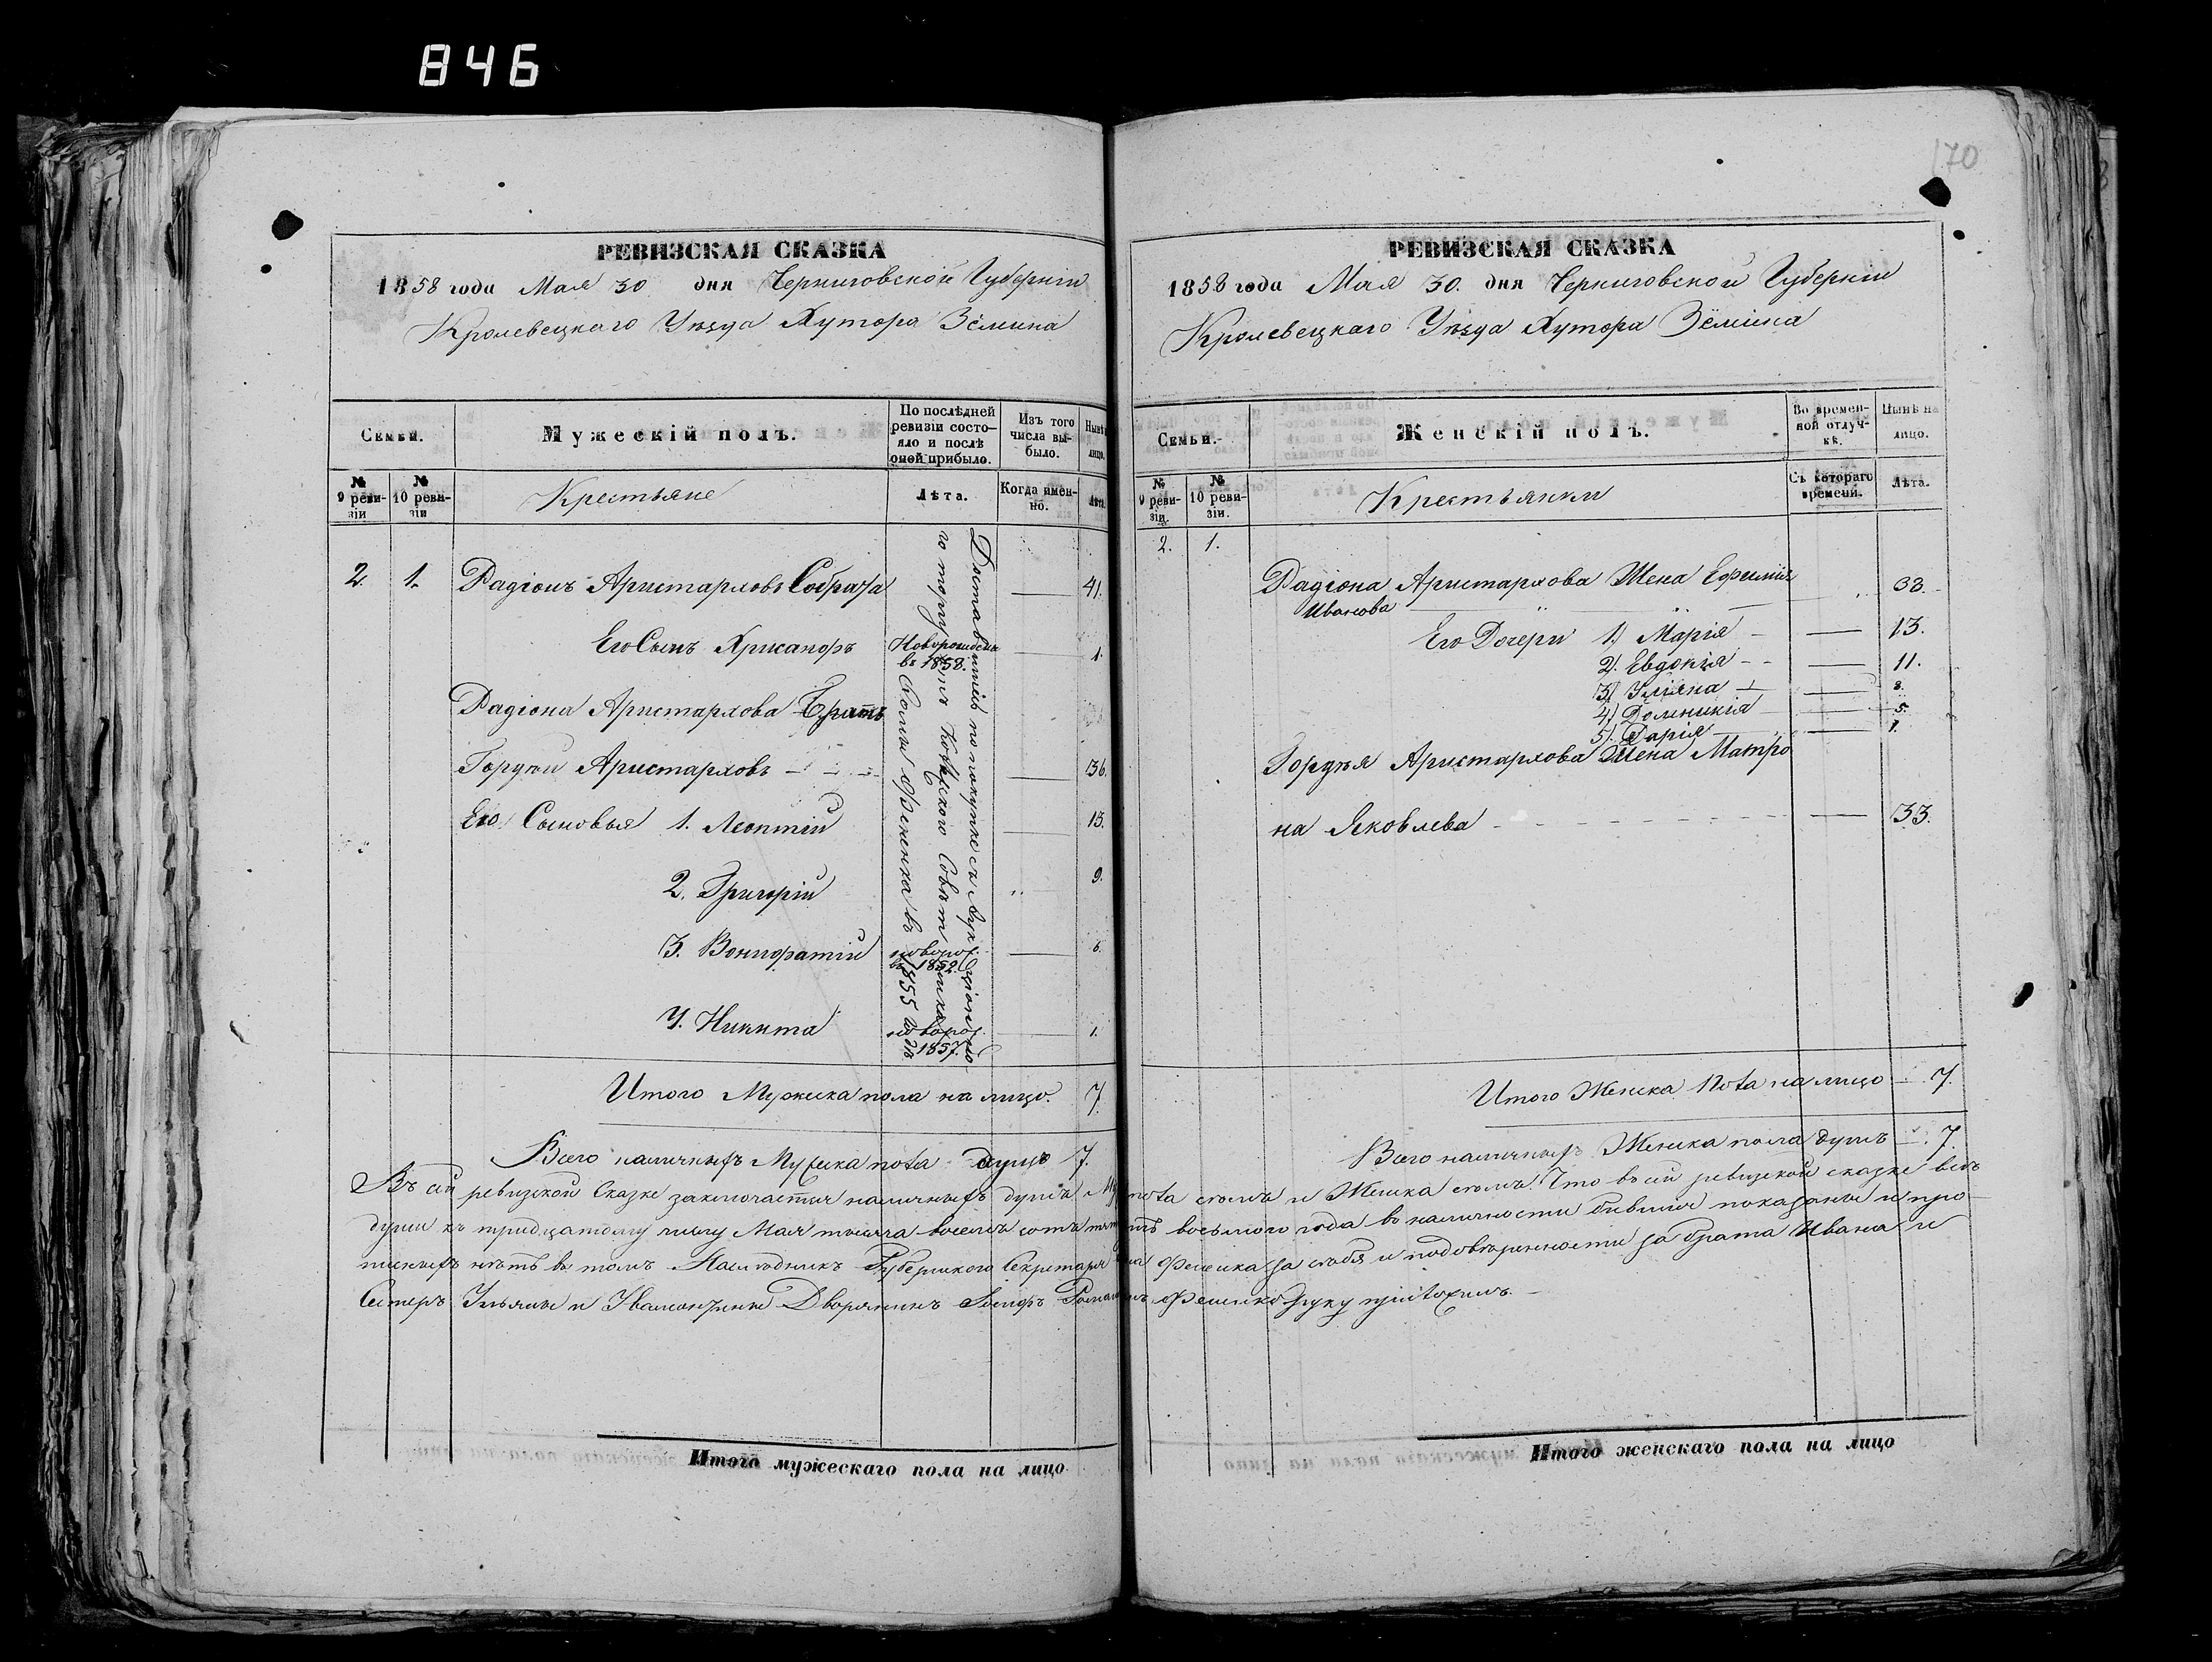 846
РЕВИЗСКАЯ СКАЗКА
1858 года Мая 30 дня Черниговской Губерніи
Кролевецкаго Уѣзда Хутора Зёмина
Семьи.
Мужескій полъ.
По послѣдней ревизіи состояло и послѣ оной прибыло.
Изъ того числа выбыло.
Нынѣ лицо.
№ 9 ревизіи
№ 10 ревизіи
Крестьяне
Лѣта.
Когда именно.
Лѣта
2. 1. Радіонъ Аристарховъ 41.
Его Сынъ Хрисанфъ Новорожденъ въ 1858. 1.
Радіона Аристархова Братъ
Гордѣй Аристарховъ 36.
Его Сыновья 1. Леонтій 15.
2. Григорій 9.
3. Вонифатій новорож. въ 1852. 6.
4. Никита новорож. въ 1857. 1.
Доставшіеся по покупке съ Аукціоннаго торгу
въ 1855 годѣ
Итого Мужеска пола на лицо. 7.
Всего наличныхъ Мужеска пола душъ 7.
Итого мужескаго пола на лицо
170
РЕВИЗСКАЯ СКАЗКА
1858 года Мая 30. дня Черниговской Губерніи
Кролевецкаго Уѣзда Хутора Зёмина
Семьи.
Женскій полъ.
Во временной отлучкѣ.
Нынѣ на лицо.
№ 9 ревизіи.
№ 10 ревизіи.
Крестьянки
Съ котораго времени.
Лѣта.
2. 1.
Радіона Аристархова Жена Ефимія 38.
Иванова
Его Дочери 1) Марія 13.
2). Евдокія 11.
3) Уліяна 8.
4) Домникія 5.
5). Дарія 1.
Гордѣя Аристархова Жена Матро
на Яковлева 33.
Итого Женска Пола на лицо 7.
Всего наличныхъ Женска пола душъ 7.
Въ сей ревизской Сказке заключается наличныхъ душъ Муж. пола семь и Женска семь. Что въ сей ревизской сказке все
души къ тридцатому числу Мая тысяча восемь сотъ пятдесятъ восьмого года въ наличности бывшія показаны и про-
писныхъ нѣтъ въ томъ Наследникъ Губернского Секретаря Фененка за себя и по довѣренности за брата Ивана и
Сестеръ Ульяны и Дворянинъ Іосифъ Романовъ Фененко руку приложилъ.
Итого женскаго пола на лицо